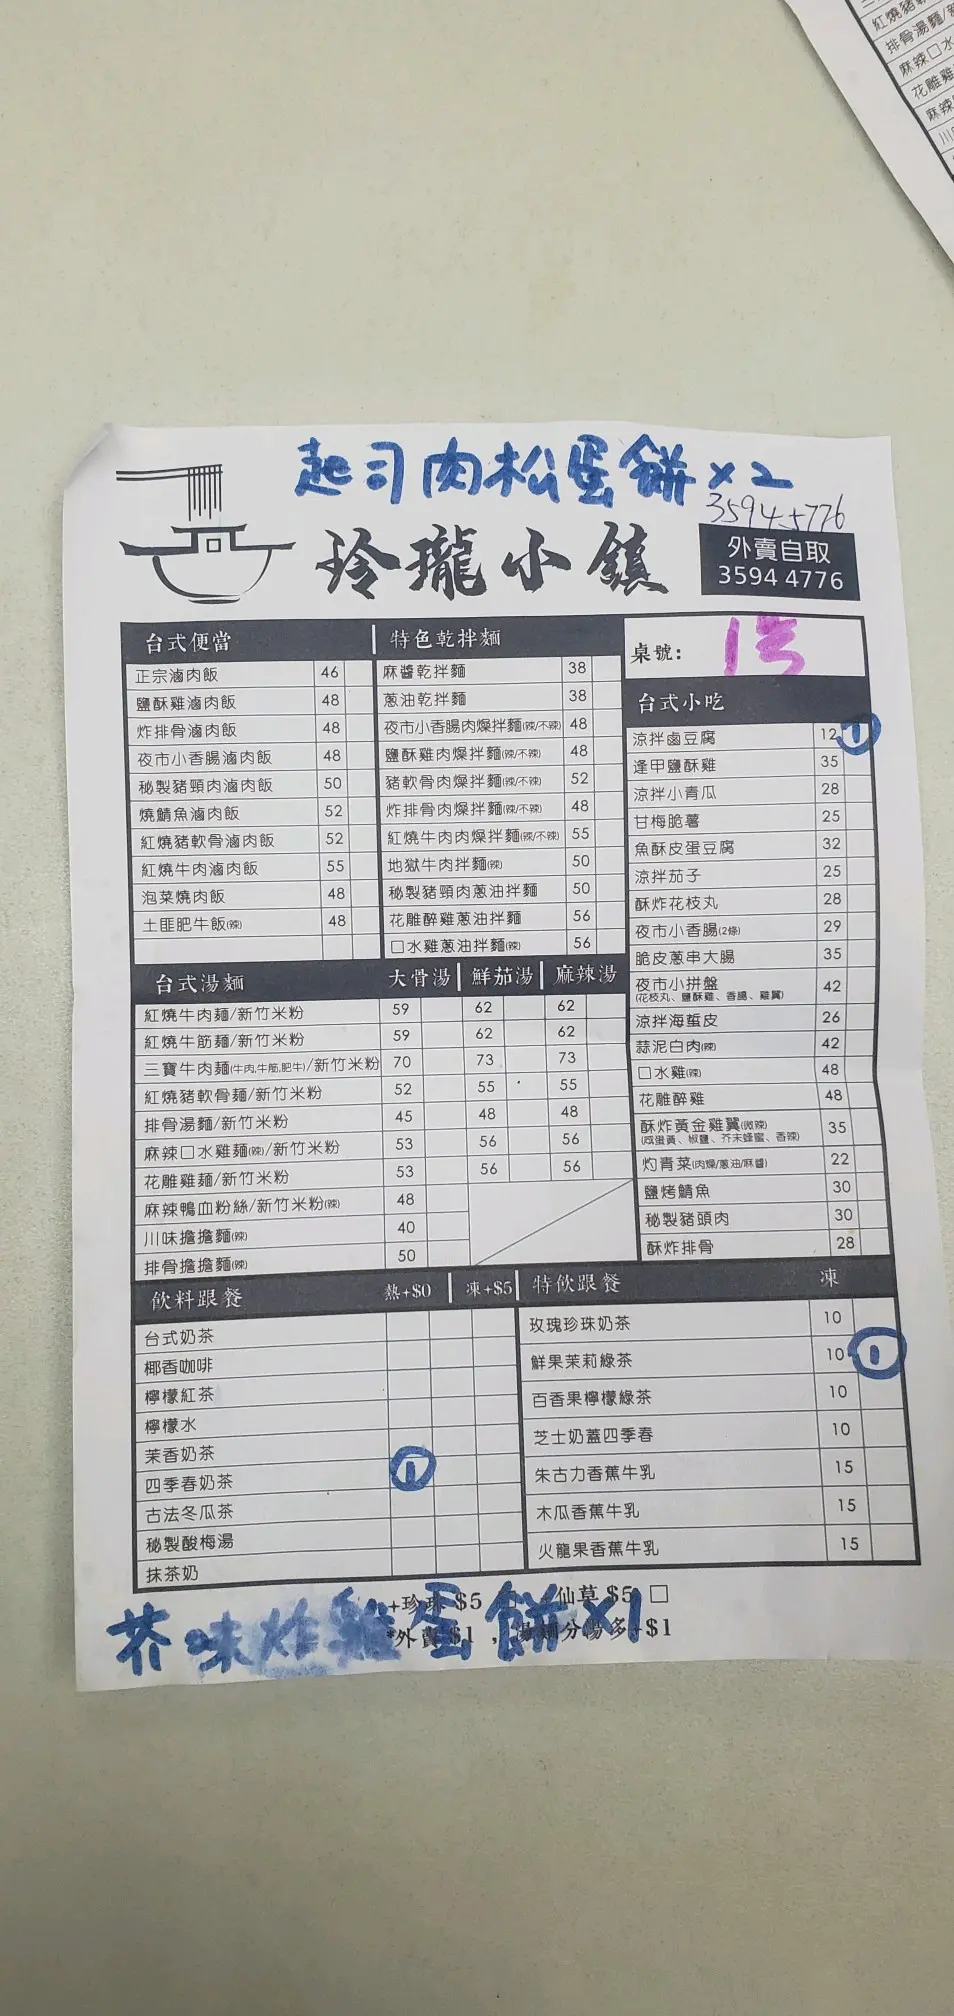 起司肉松蛋餅×2
3594 5776
玲瓏小鎮
外賣自取
3594 4776
桌號: 1号
台式便當
正宗滷肉飯 46
鹽酥雞滷肉飯 48
炸排骨滷肉飯 48
夜市小香腸滷肉飯 48
秘製豬頸肉滷肉飯 50
燒鯖魚滷肉飯 52
紅燒豬軟骨滷肉飯 52
紅燒牛肉滷肉飯 55
泡菜燒肉飯 48
土匪肥牛飯(辣) 48
特色乾拌麵
麻醬乾拌麵 38
蔥油乾拌麵 38
夜市小香腸肉燥拌麵(辣/不辣) 48
鹽酥雞肉燥拌麵(辣/不辣) 48
豬軟骨肉燥拌麵(辣/不辣) 52
炸排骨肉燥拌麵(辣/不辣) 48
紅燒牛肉肉燥拌麵(辣/不辣) 55
地獄牛肉拌麵(辣) 50
秘製豬頸肉蔥油拌麵 50
花雕醉雞蔥油拌麵 56
口水雞蔥油拌麵(辣) 56
台式小吃
涼拌鹵豆腐 12 1
逢甲鹽酥雞 35
涼拌小青瓜 28
甘梅脆薯 25
魚酥皮蛋豆腐 32
涼拌茄子 25
酥炸花枝丸 28
夜市小香腸(2條) 29
脆皮蔥串大腸 35
夜市小拼盤 42
(花枝丸、鹽酥雞、香腸、雞翼)
涼拌海蜇皮 26
蒜泥白肉(辣) 42
口水雞(辣) 48
花雕醉雞 48
酥炸黃金雞翼(微辣) 35
(咸蛋黃、椒鹽、芥末蜂蜜、香辣)
灼青菜(肉燥/蔥油/麻醬) 22
鹽烤鯖魚 30
秘製豬頭肉 30
酥炸排骨 28
台式湯麵 大骨湯 鮮茄湯 麻辣湯
紅燒牛肉麵/新竹米粉 59 62 62
紅燒牛筋麵/新竹米粉 59 62 62
三寶牛肉麵(牛肉,牛筋,肥牛)/新竹米粉 70 73 73
紅燒豬軟骨麵/新竹米粉 52 55 55
排骨湯麵/新竹米粉 45 48 48
麻辣口水雞麵(辣)/新竹米粉 53 56 56
花雕雞麵/新竹米粉 53 56 56
麻辣鴨血粉絲/新竹米粉(辣) 48
川味擔擔麵(辣) 40
排骨擔擔麵(辣) 50
飲料跟餐 熱+$0 凍+$5
台式奶茶
椰香咖啡
檸檬紅茶
檸檬水
茉香奶茶
四季春奶茶 1
古法冬瓜茶
秘製酸梅湯
抹茶奶
特飲跟餐 凍
玫瑰珍珠奶茶 10
鮮果茉莉綠茶 10 1
百香果檸檬綠茶 10
芝士奶蓋四季春 10
朱古力香蕉牛乳 15
木瓜香蕉牛乳 15
火龍果香蕉牛乳 15
+珍珠$5 □ +仙草$5 □
*外賣$1，湯麵分湯多+$1
芥味炸雞蛋餅×1
紅燒豬
排骨湯麵/新
麻辣口水
花雕雞
麻辣
川